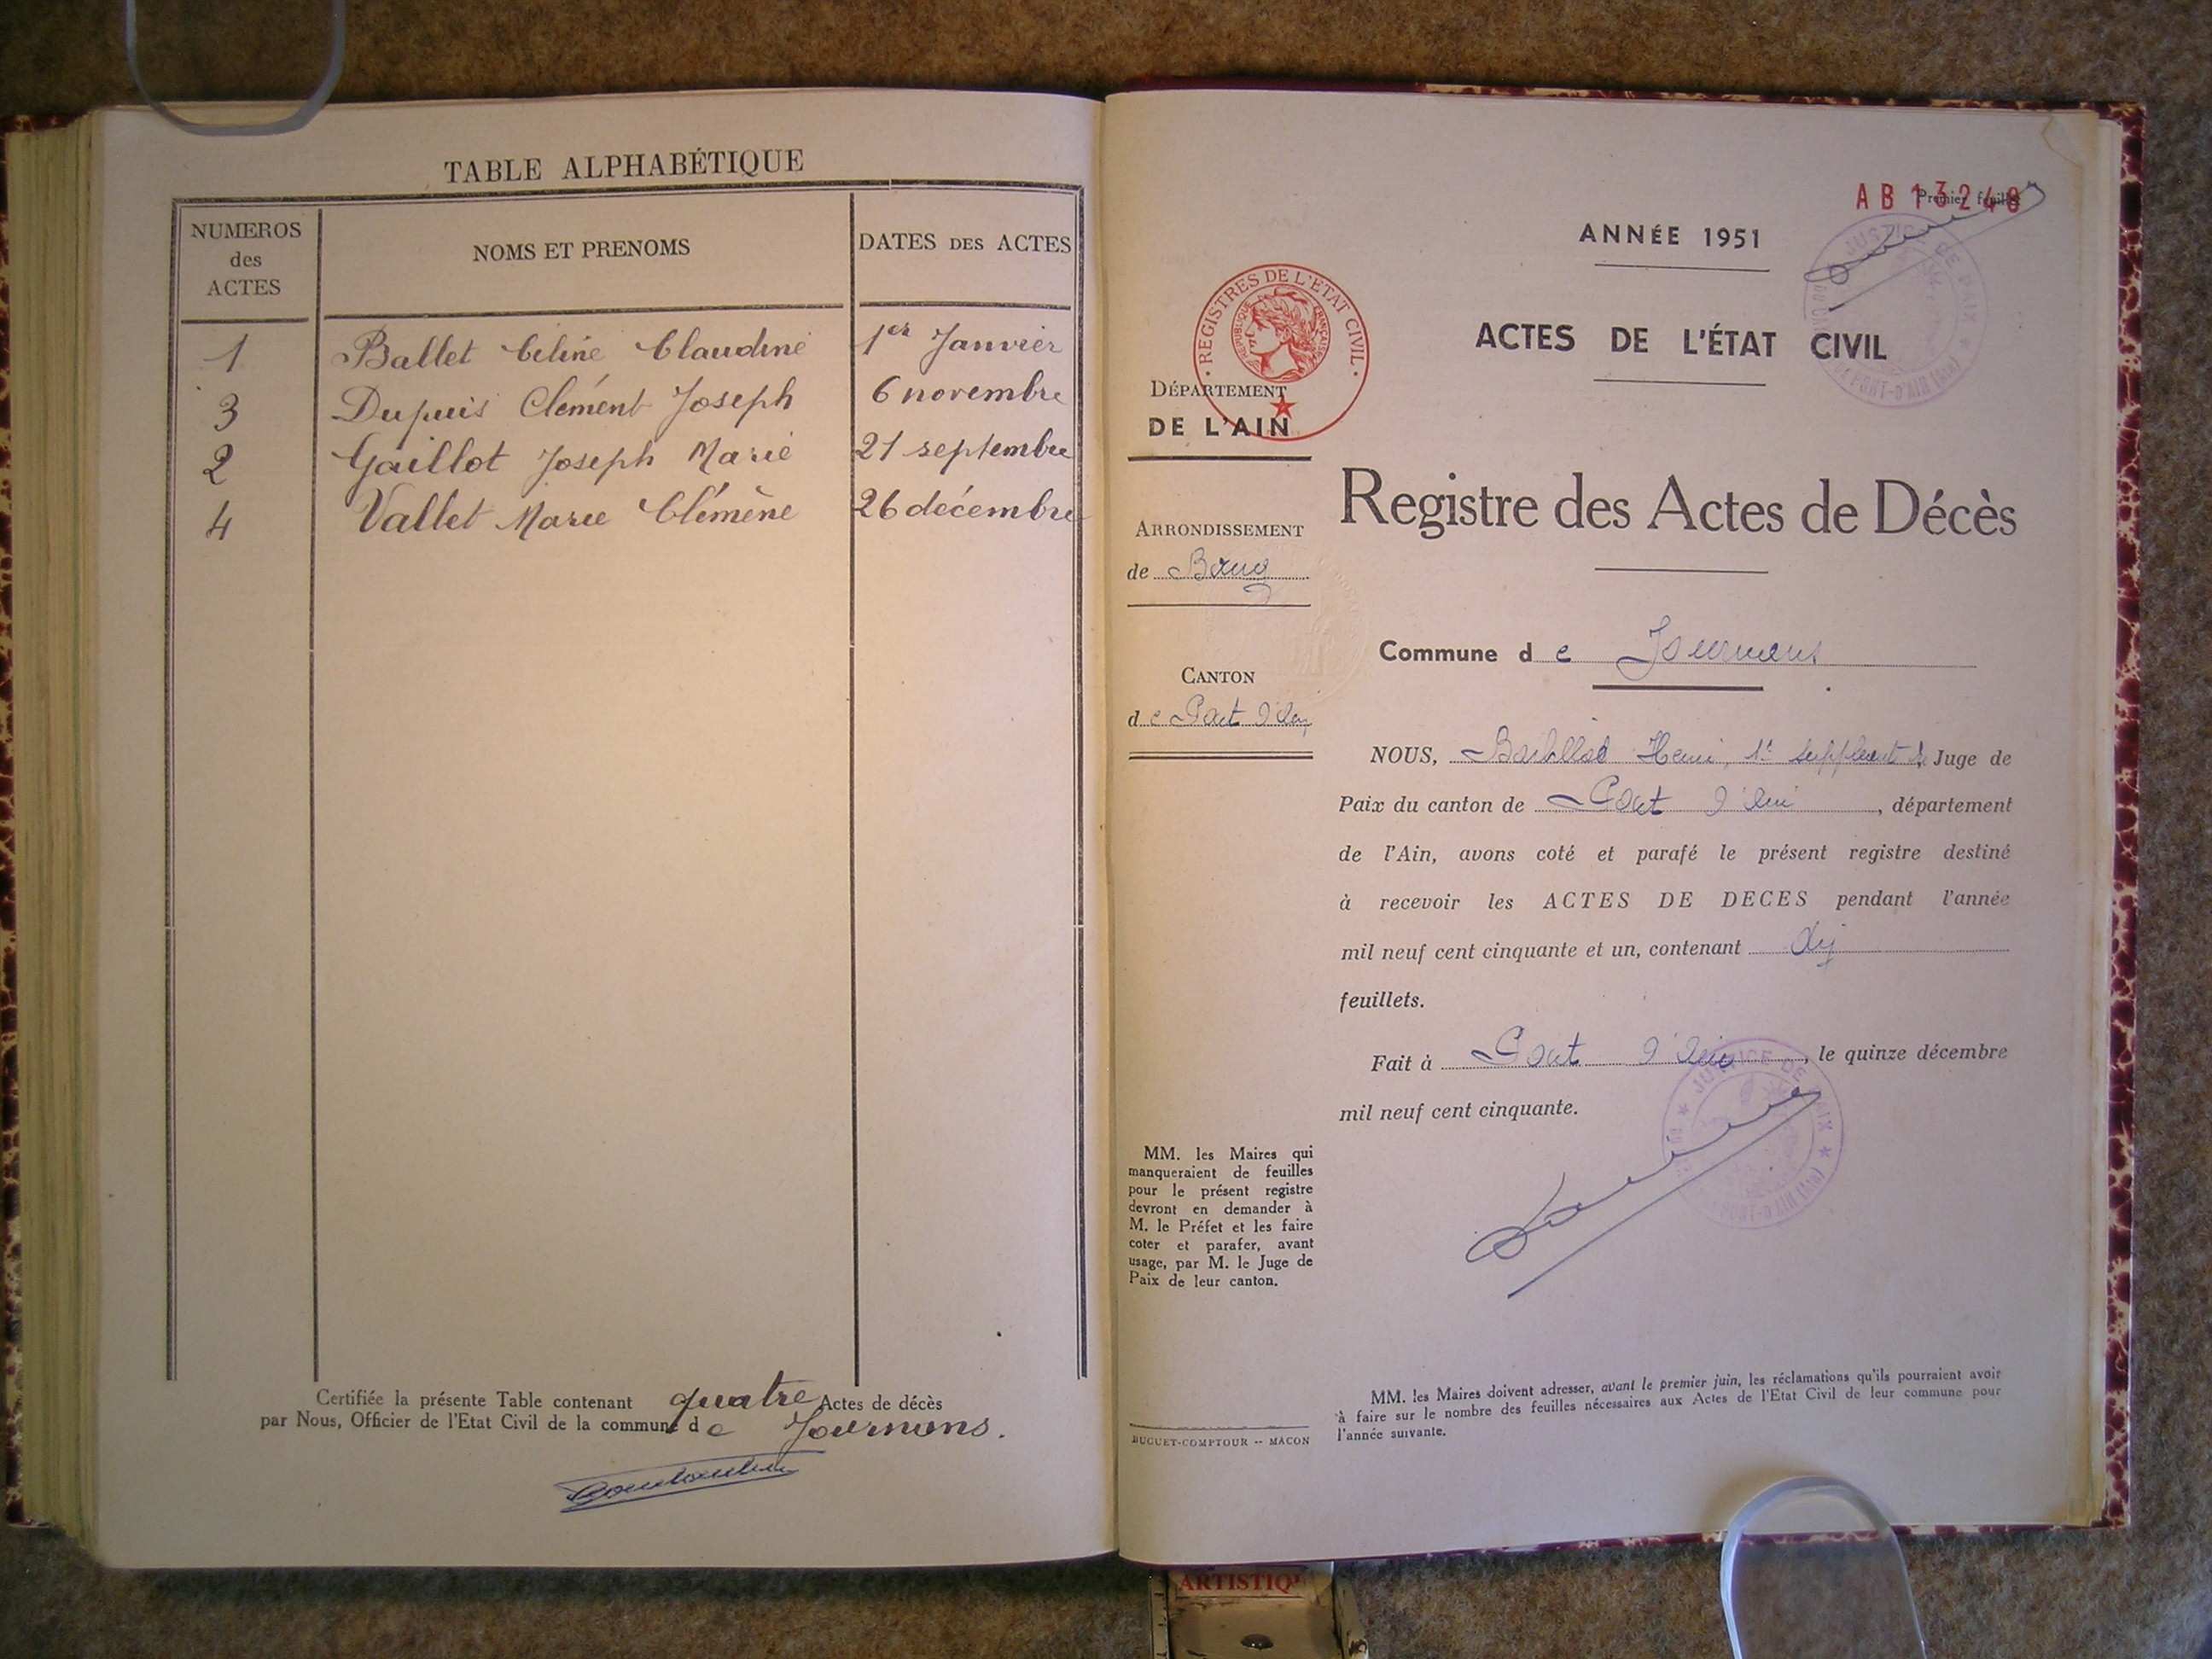 TABLE ALPHABÉTIQUE
NUMEROS
des
ACTES
NOMS ET PRENOMS
DATES DES ACTES
1 Ballet Céline Claudine 1er Janvier
3 Dupuis Clément Joseph 6 novembre
2 Gaillot Joseph Marie 21 septembre
4 Vallet Marie Clémène 26 décembre
Certifiée la présente Table contenant quatre Actes de décès
par Nous, Officier de l'Etat Civil de la commune de Journans.
AB 13248
Premier feuillet
ANNÉE 1951
ACTES DE L'ÉTAT CIVIL
REGISTRES DE L'ETAT CIVIL
REPUBLIQUE FRANÇAISE
DÉPARTEMENT
DE L'AIN
Registre des Actes de Décès
ARRONDISSEMENT
de Bourg
Commune de Journans
CANTON
de Pont d'Ain
NOUS, Henri, 1er suppléant du Juge de
Paix du canton de Pont d'Ain, département
de l'Ain, avons coté et parafé le présent registre destiné
à recevoir les ACTES DE DECES pendant l'année
mil neuf cent cinquante et un, contenant dix
feuillets.
Fait à Pont d'Ain, le quinze décembre
mil neuf cent cinquante.
JUSTICE DE PAIX
MM. les Maires qui
manqueraient de feuilles
pour le présent registre
devront en demander à
M. le Préfet et les faire
coter et parafer, avant
usage, par M. le Juge de
Paix de leur canton.
MM. les Maires doivent adresser, avant le premier juin, les réclamations qu'ils pourraient avoir
à faire sur le nombre des feuilles nécessaires aux Actes de l'Etat Civil de leur commune pour
l'année suivante.
BUGUET-COMPTOUR -- MACON
ARTISTIQ